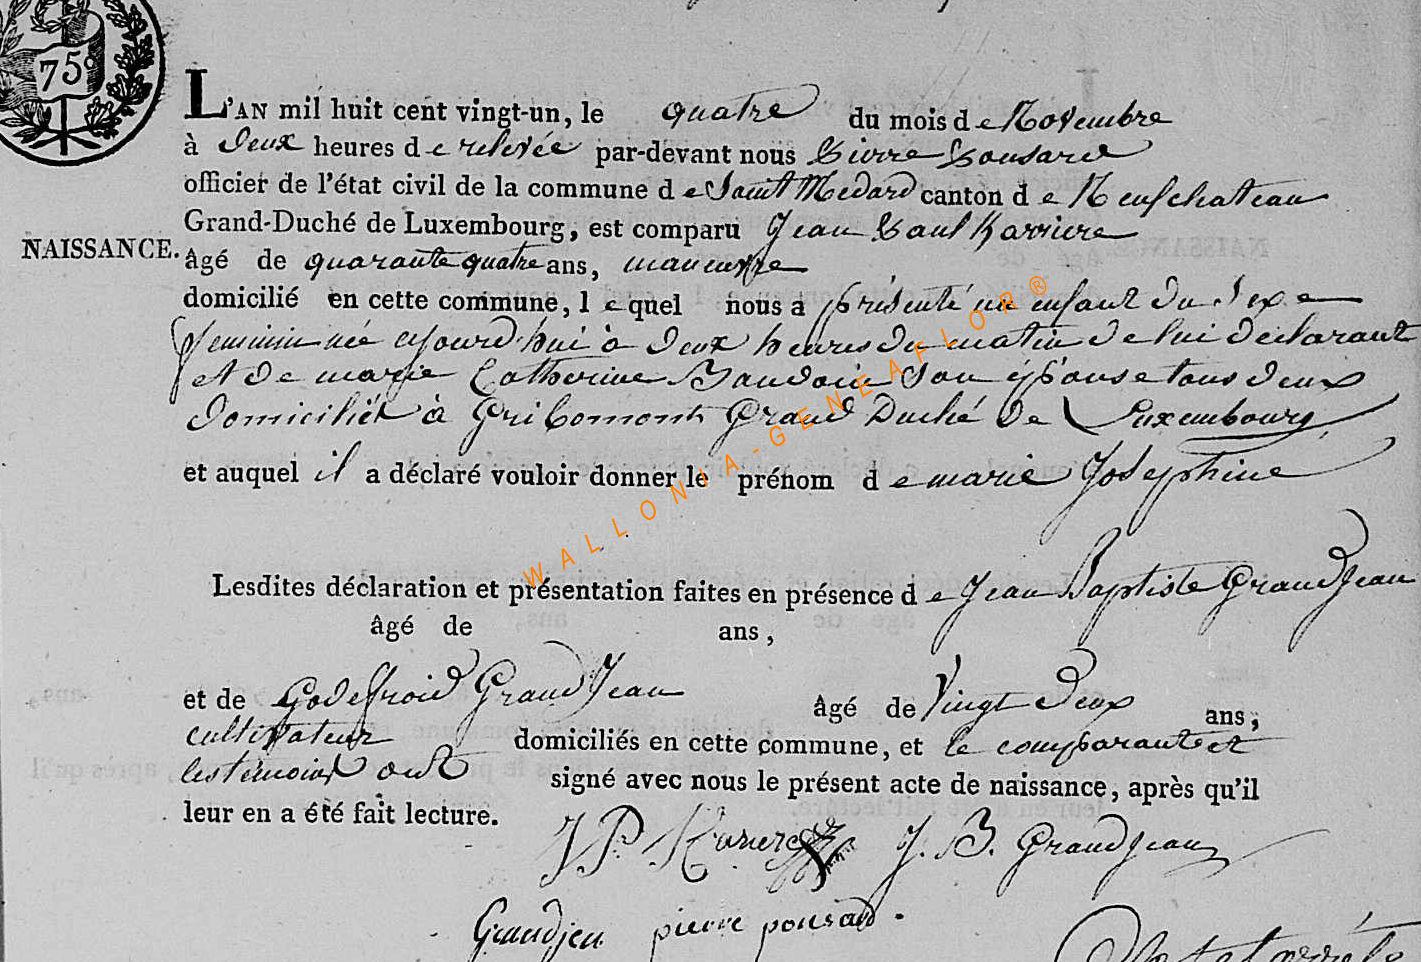 75c
L'AN mil huit cent vingt-un, le quatre du mois de Novembre
à deux heures de relevée par-devant nous Pierre Ponsard
officier de l'état civil de la commune de Saint Medard canton de Neufchateau
Grand-Duché de Luxembourg, est comparu Jean Paul Karriere
NAISSANCE.
âgé de quarante quatre ans, maneuvre
domicilié en cette commune, lequel nous a présenté un enfant du Sexe
feminin née ajourd'hui à deux heures du matin de lui déclarant
et de marie Catherine Baudoin Son épouse tous deux
domiciliés à Gribomont Grand Duché de Luxembourg
et auquel il a déclaré vouloir donner le prénom de marie Josephine
Lesdites déclaration et présentation faites en présence de Jean Baptiste GrandJean
âgé de ans,
et de Godefroid GrandJean âgé de Vingt deux ans,
cultivateur domiciliés en cette commune, et le comparant et
les témoins ont signé avec nous le présent acte de naissance, après qu'il
leur en a été fait lecture.
JP. J. B. Grandjean
Grandjen pierre ponsard.
WALLONIA-GENEAFLOR®